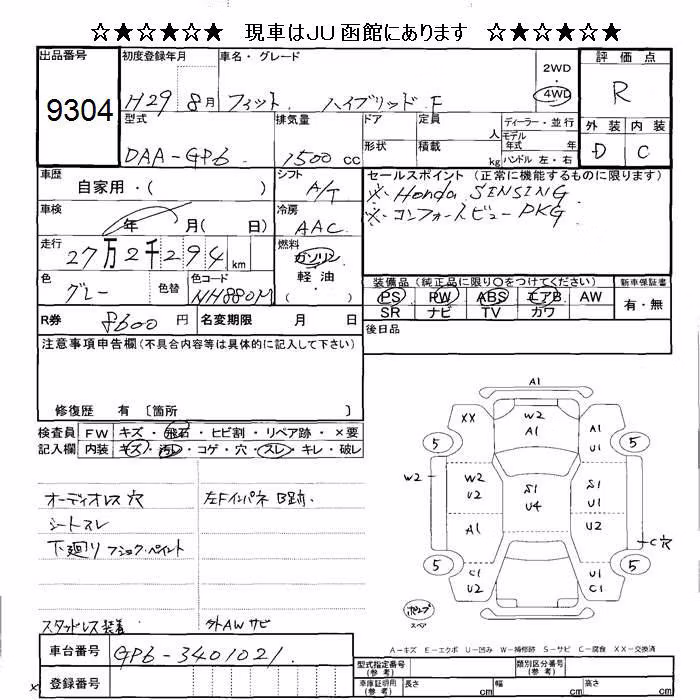 ☆★☆★☆★ 現車はJU函館にあります ☆★☆★☆★
出品番号 初度登録年月 車名・グレード 2WD 評価点
9304 H29 8月 フィット ハイブリッド F 4WD R
型式 排気量 ドア 定員 人 ディーラー・並行 外装 内装
モデル年式 年
DAA-GP6 1500 cc 形状 積載 kg ハンドル 左・右 D C
車歴 シフト セールスポイント (正常に機能するものに限ります)
自家用・( ) A/T ※Honda SENSING
車検 年 月( 日) 冷房 AAC ※コンフォートビューPKG
走行 27万2千294 km 燃料 ガソリン
軽油 ( )
色 グレー 色替 色コード NH880M
装備品 (純正品に限り○をつけてください) 新車保証書
PS PW ABS エアB AW 有・無
SR ナビ TV カワ
R券 8600 円 名変期限 月 日 後日品
注意事項申告欄(不具合内容等は具体的に記入して下さい)
修復歴 有 〔箇所 〕
検査員 FW キズ・飛石・ヒビ割・リペア跡・×要
記入欄 内装 キズ・汚レ・コゲ・穴・スレ・キレ・破レ
オーディオレス穴 左Fインパネ B跡.
シートスレ
下廻り フショク・ペイント
スタッドレス装着 外AWサビ
A1
XX W2 A1 A1 U1
5 5
W2 W2 U2 S1 U4 S1 U1
A1 U2
C穴
5 5
C1 U2 U1 C1
スペア
A-キズ E-エクボ U-凹み W-補修跡 S-サビ C-腐食 XX-交換済
車台番号 GP6-3401021
登録番号
型式指定番号(参考) 類別区分番号(参考)
車庫証明用(参考) 長さ cm 幅 cm 高さ cm